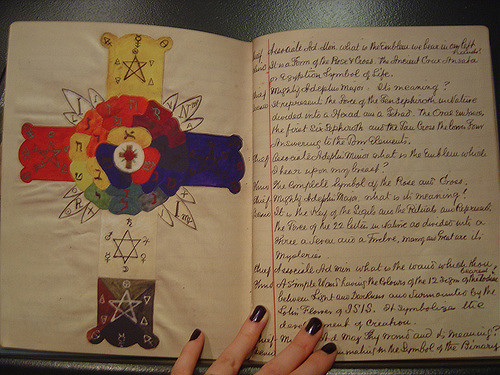 Associate Ad. Min. what is the Emblem we bear in our left
It is a Form of the Rose & Cross. The Ancient Crux Ansata
or Egyptian Symbol of Life.
Mighty Adeptus Major. Its meaning?
It represents the Force of the Ten Sephiroth in Nature
divided into a Hexad and a Tetrad. The Oval
the first Six Sephiroth and the Tau Cross the lower Four
Answering to the Four Elements.
Associate Adeptus Minor what is the Emblem which
I bear upon my breast?
The Complete Symbol of the Rose and Cross.
Mighty Adeptus Major, what is its meaning?
It is the Key of the Sigils and the Rituals and represents
the Force of the 22 letters in Nature as divided into a
Three a Seven and a Twelve, many and great are its
Mysteries
Associate Ad. Min what is the wand which thou
bearest
A Simple Wand having the Colours of the 12 Signs of the Zodiac
between Light and Darkness and Surmounted by the
Lotus Flower of ISIS. It Symbolizes the
development of Creation.
Ad. Maj Thy Wand and its meaning?
in the Symbol of the Binary